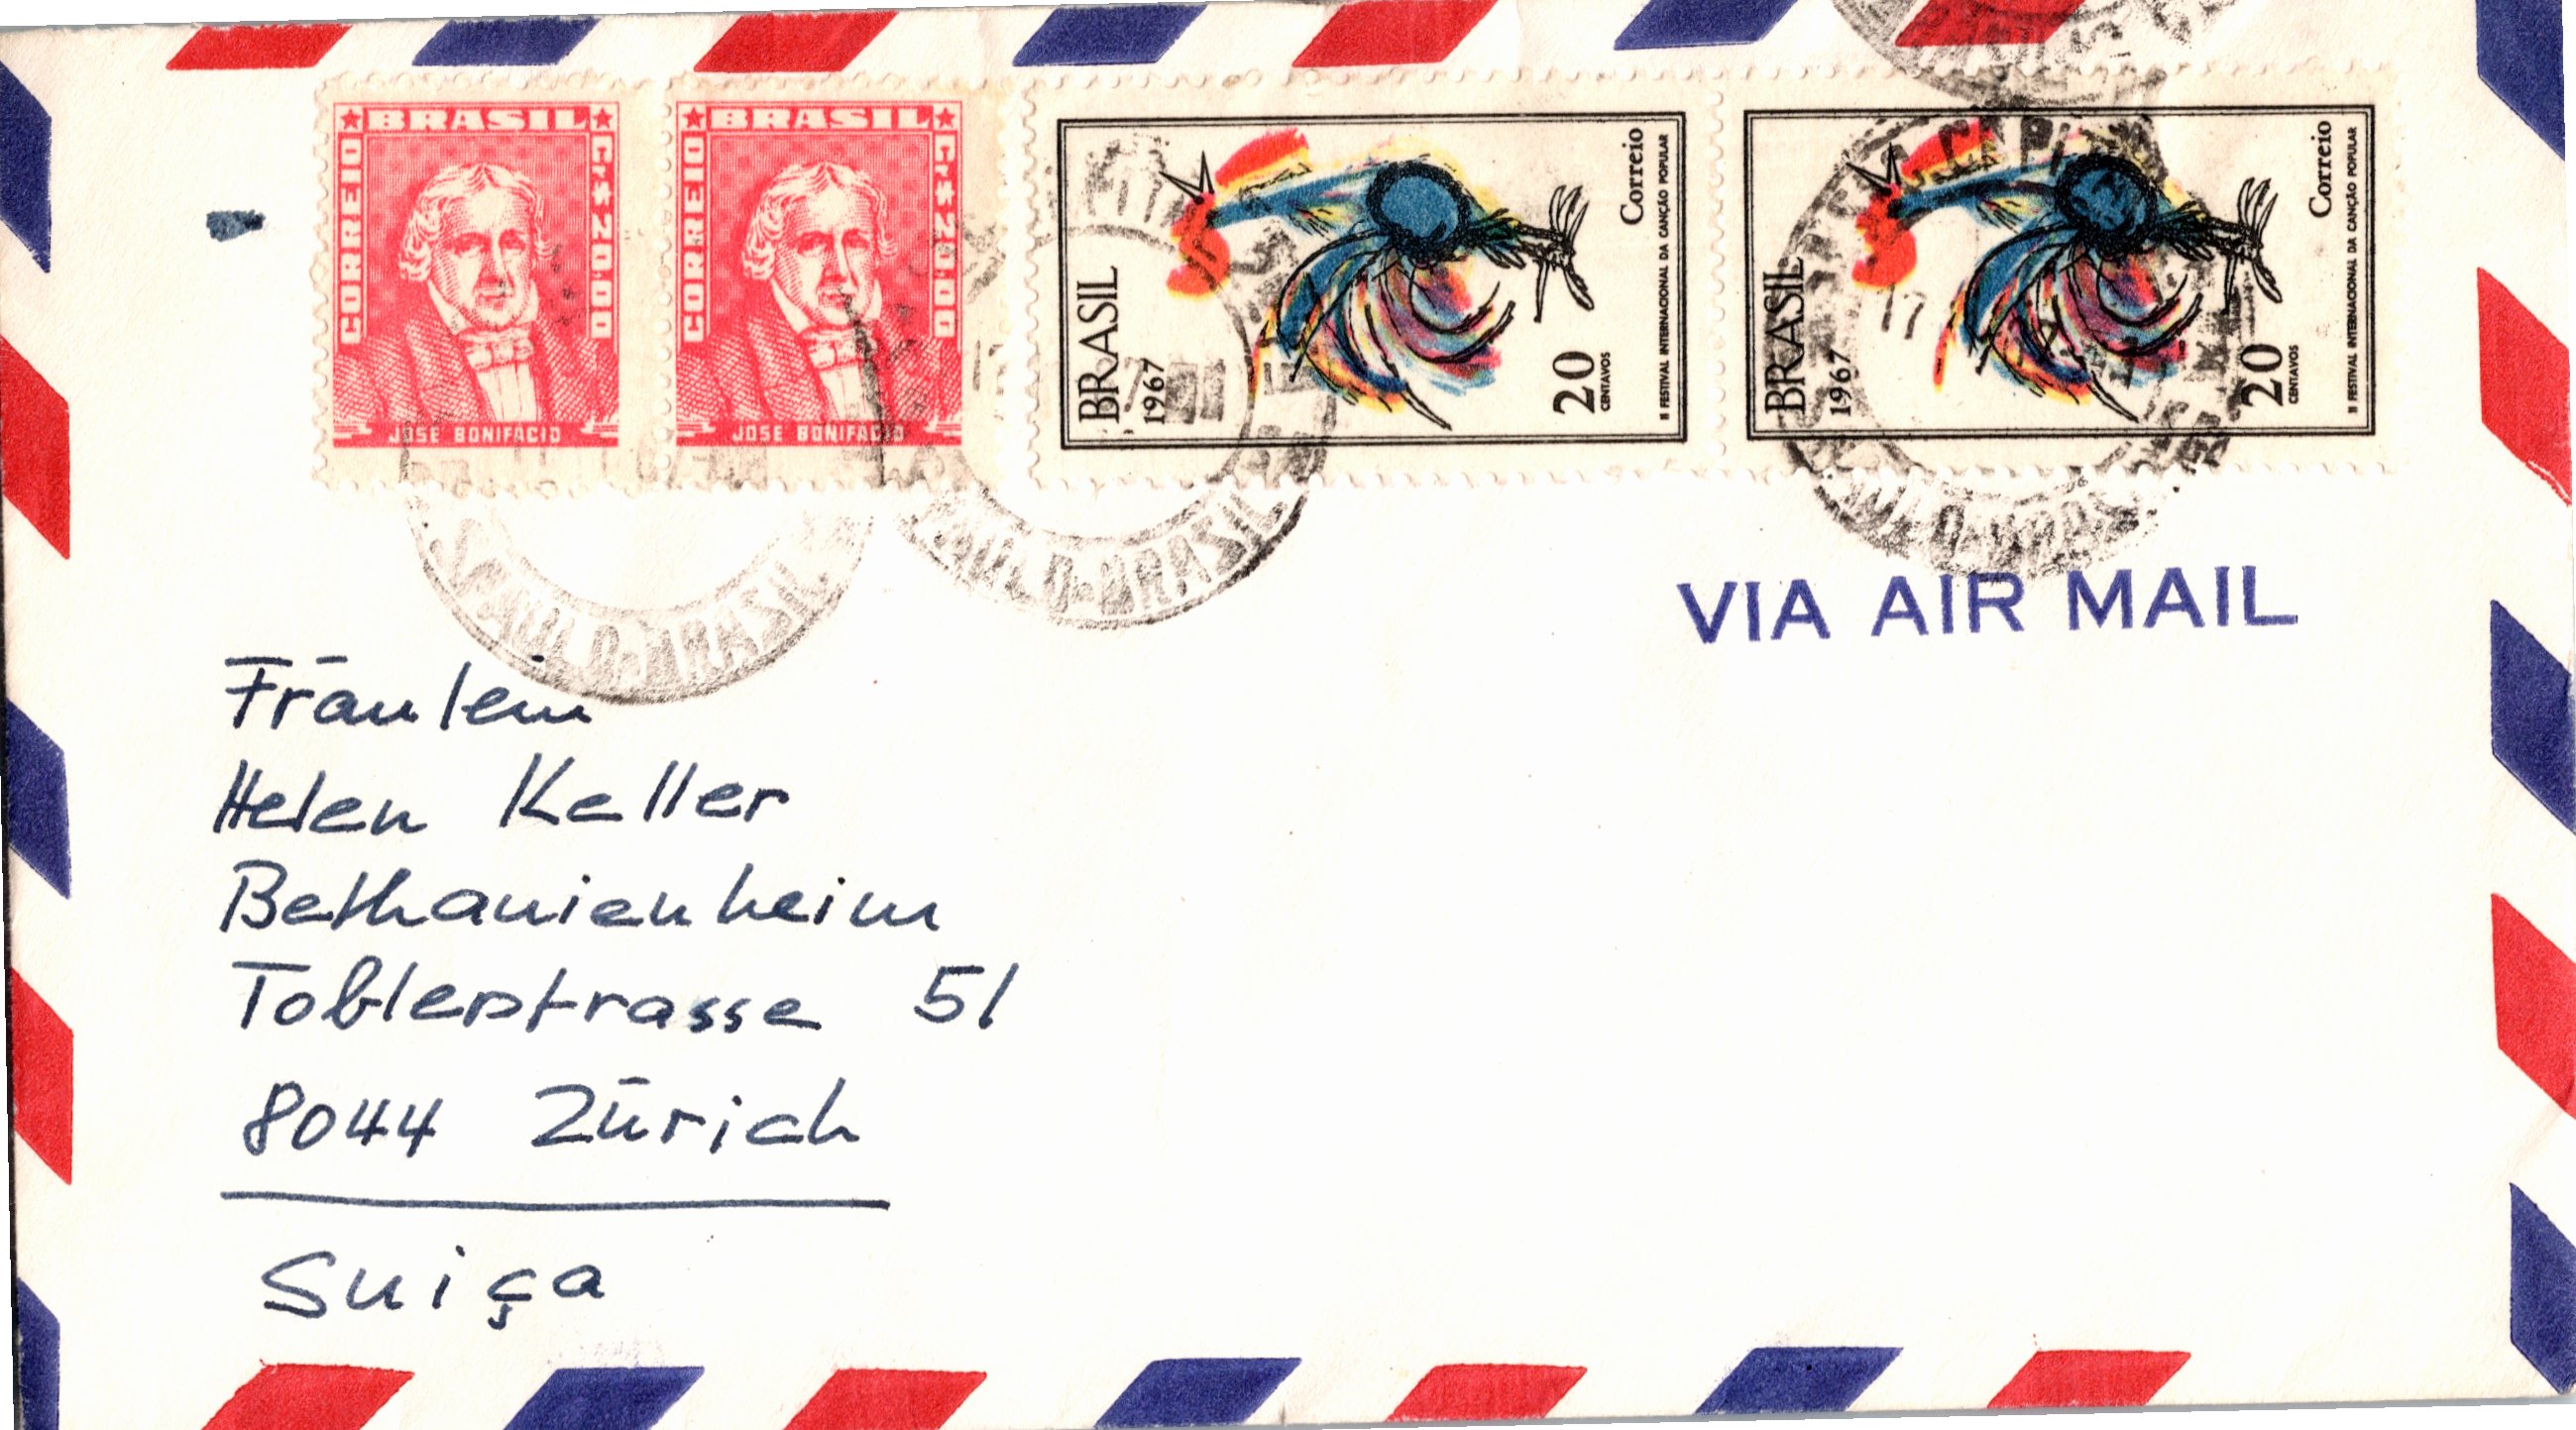 BRASIL
CORREIO
Cr$ 20,00
JOSÉ BONIFACIO
BRASIL
CORREIO
Cr$ 20,00
JOSÉ BONIFACIO
BRASIL
1967
20
CENTAVOS
Correio
II FESTIVAL INTERNACIONAL DA CANÇÃO POPULAR
BRASIL
1967
20
CENTAVOS
Correio
II FESTIVAL INTERNACIONAL DA CANÇÃO POPULAR
PAULO-BRASIL
PAULO-BRASIL
VIA AIR MAIL
Fräulein
Helen Keller
Bethanienheim
Toblerstrasse 51
8044 Zürich
Suiça